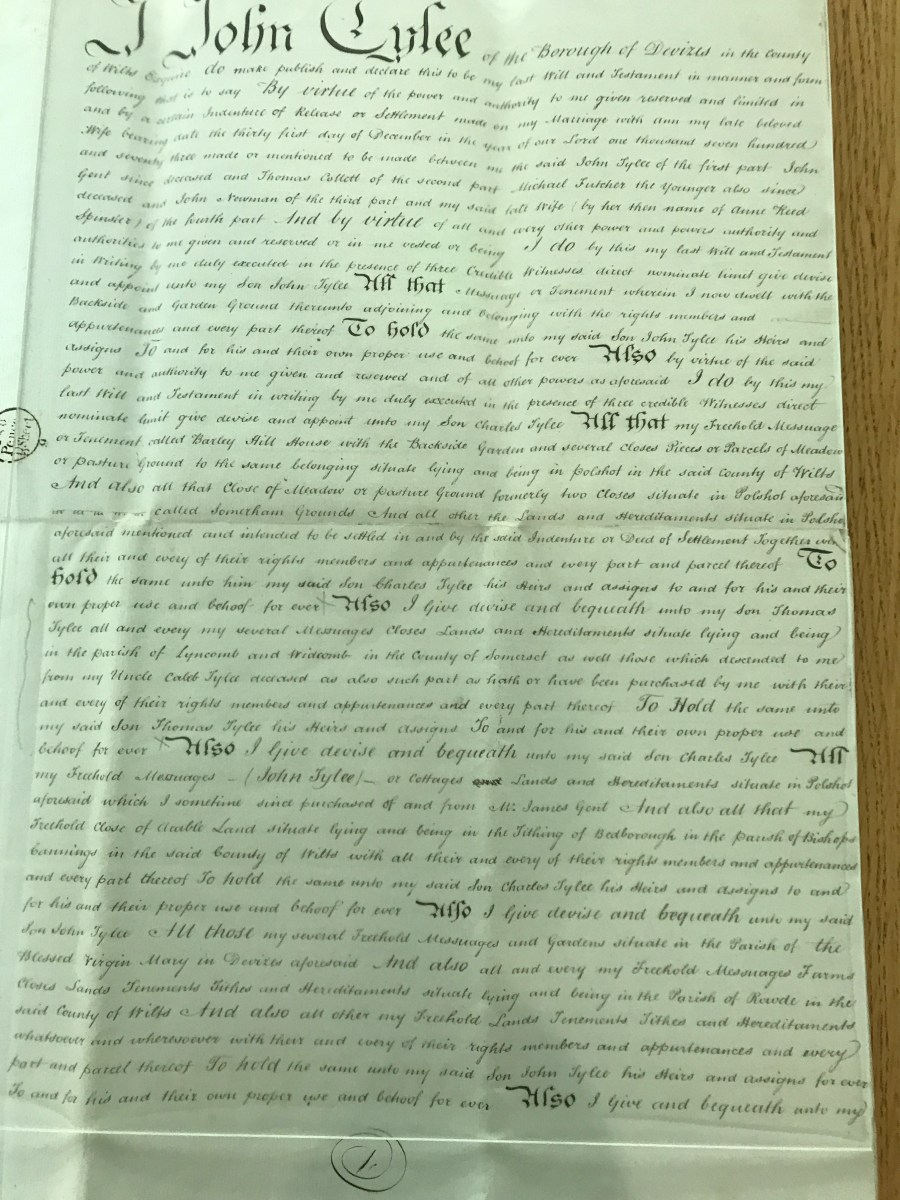 I John Tylee of the Borough of Devizes in the County
of Wilts Esquire do make publish and declare this to be my last Will and Testament in manner and form
following that is to say By virtue of the power and authority to me given reserved and limited in
and by a certain Indenture of Release or Settlement made on my Marriage with Ann my late beloved
Wife bearing date the thirty first day of December in the year of our Lord one thousand seven hundred
and seventy three made or mentioned to be made between me the said John Tylee of the first part John
Gent since deceased and Thomas Collett of the second part Michael Futcher the Younger also since
deceased and John Newman of the third part and my said late Wife (by her then name of Anne Reed
Spinster) of the fourth part And by virtue of all and every other power and powers authority and
authorities to me given and reserved or in me vested or being I do by this my last Will and Testament
in Writing by me duly executed in the presence of three Credible Witnesses direct nominate limit give devise
and appoint unto my Son John Tylee All that Messuage or Tenement wherein I now dwell with the
Backside and Garden Ground thereunto adjoining and belonging with the rights members and
appurtenances and every part thereof To hold the same unto my said Son John Tylee his Heirs and
Assigns To and for his and their own proper use and behoof for ever Also by virtue of the said
power and authority to me given and reserved and of all other powers as aforesaid I do by this my
last Will and Testament in writing by me duly executed in the presence of three credible Witnesses direct
nominate limit give devise and appoint unto my Son Charles Tylee All that my Freehold Messuage
or Tenement called Barley Hill House with the Backside Garden and several Closes Pieces or Parcels of Meadow
or pasture Ground to the same belonging situate lying and being in Polshot in the said County of Wilts
And also all that Close of Meadow or pasture Ground formerly two Closes situate in Polshot aforesaid
called Somerham Grounds And all other the Lands and Hereditaments situate in Polshot
aforesaid mentioned and intended to be settled in and by the said Indenture or Deed of Settlement Together with
all their and every of their rights members and appurtenances and every part and parcel thereof To
hold the same unto him my said Son Charles Tylee his Heirs and assigns to and for his and their
own proper use and behoof for ever Also I Give devise and bequeath unto my Son Thomas
Tylee all and every my several Messuages Closes Lands and Hereditaments situate lying and being
in the parish of Lyncomb and Widcomb in the County of Somerset as well those which descended to me
from my Uncle Caleb Tylee deceased as also such part as hath or have been purchased by me with their
and every of their rights members and appurtenances and every part thereof To Hold the same unto
my said Son Thomas Tylee his Heirs and Assigns To and for his and their own proper use and
behoof for ever Also I Give devise and bequeath unto my said Son Charles Tylee All
my Freehold Messuages - (John Tylee) - or Cottages and Lands and Hereditaments situate in Polshot
aforesaid which I sometime since purchased of and from Mr. James Gent And also all that my
Freehold Close of Arable Land situate lying and being in the Tithing of Bedborough in the parish of Bishops
Cannings in the said County of Wilts with all their and every of their rights members and appurtenances
and every part thereof To hold the same unto my said Son Charles Tylee his Heirs and assigns to and
for his and their proper use and behoof for ever Also I Give devise and bequeath unto my said
Son John Tylee All those my several Freehold Messuages and Gardens situate in the Parish of the
Blessed Virgin Mary in Devizes aforesaid And also all and every my Freehold Messuages Farms
Closes Lands Tenements Tithes and Hereditaments situate lying and being in the Parish of Rowde in the
said County of Wilts And also all other my Freehold Lands Tenements Tithes and Hereditaments
whatsoever and wheresoever with their and every of their rights members and appurtenances and every
part and parcel thereof To hold the same unto my said Son John Tylee his Heirs and assigns for ever
To and for his and their own proper use and behoof for ever Also I Give and bequeath unto my
1